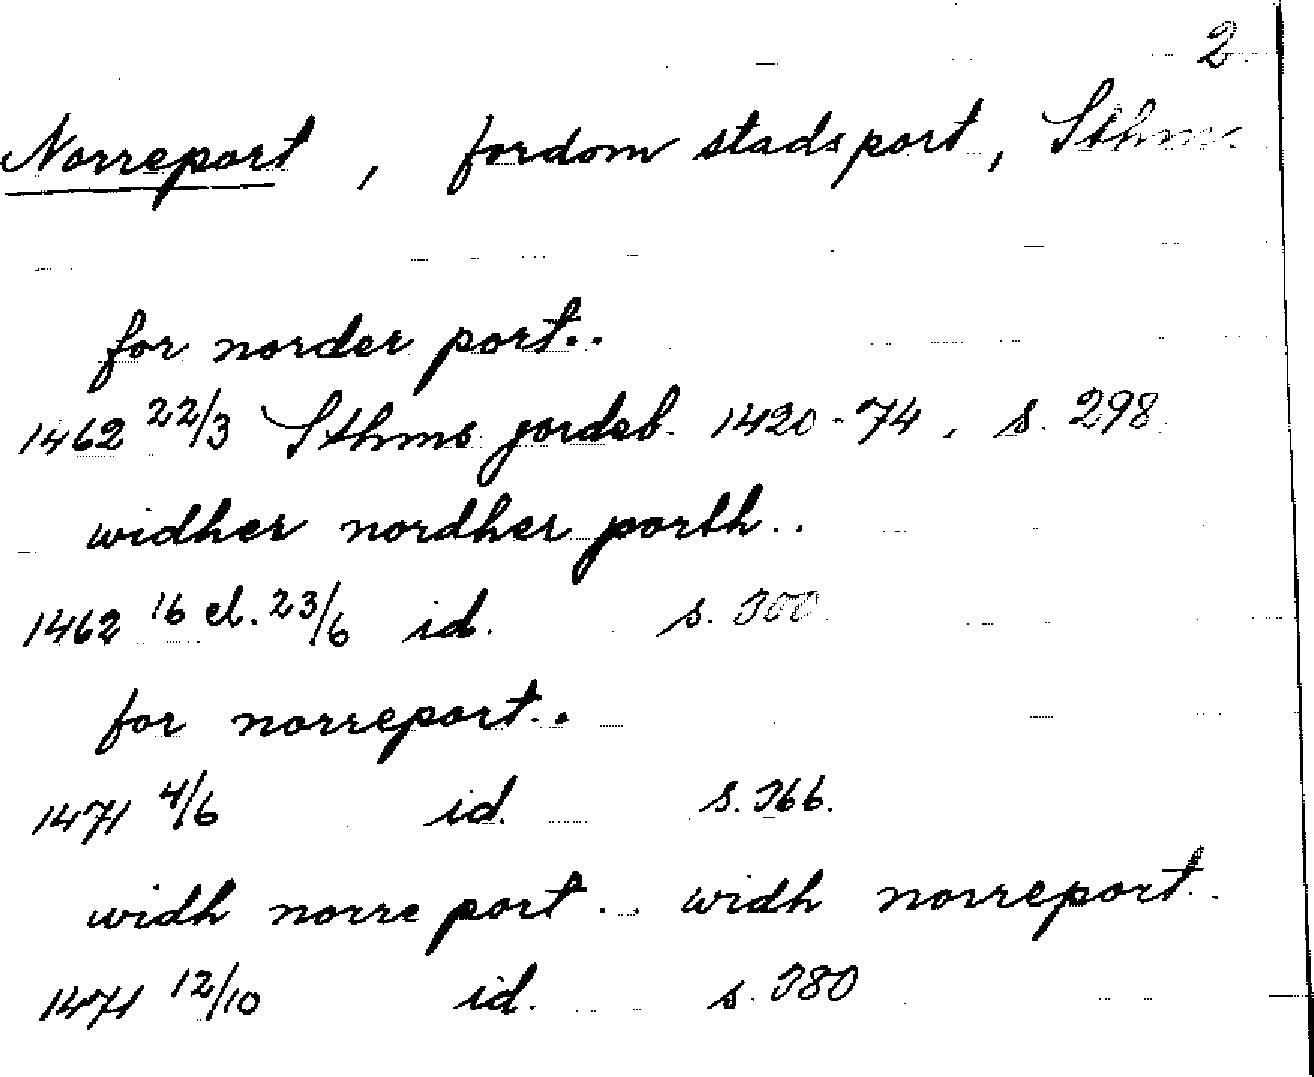 2
Norreport, fordom stadsport, Sthm.
for norder port..
1462 22/3 Sthms jordeb. 1420-74, s. 298
widher nordher porth..
1462 16 el. 23/6 id. s. 300
for norreport..
1471 4/6 id. s. 366.
widh norre port.. widh norreport..
1471 12/10 id. s. 380